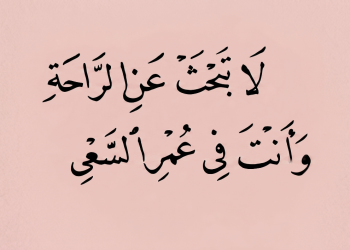 لَا تَبْحَثْ عَنِ الرَّاحَةِ
وَأَنْتَ فِي عُمْرِ السَّعْيِ